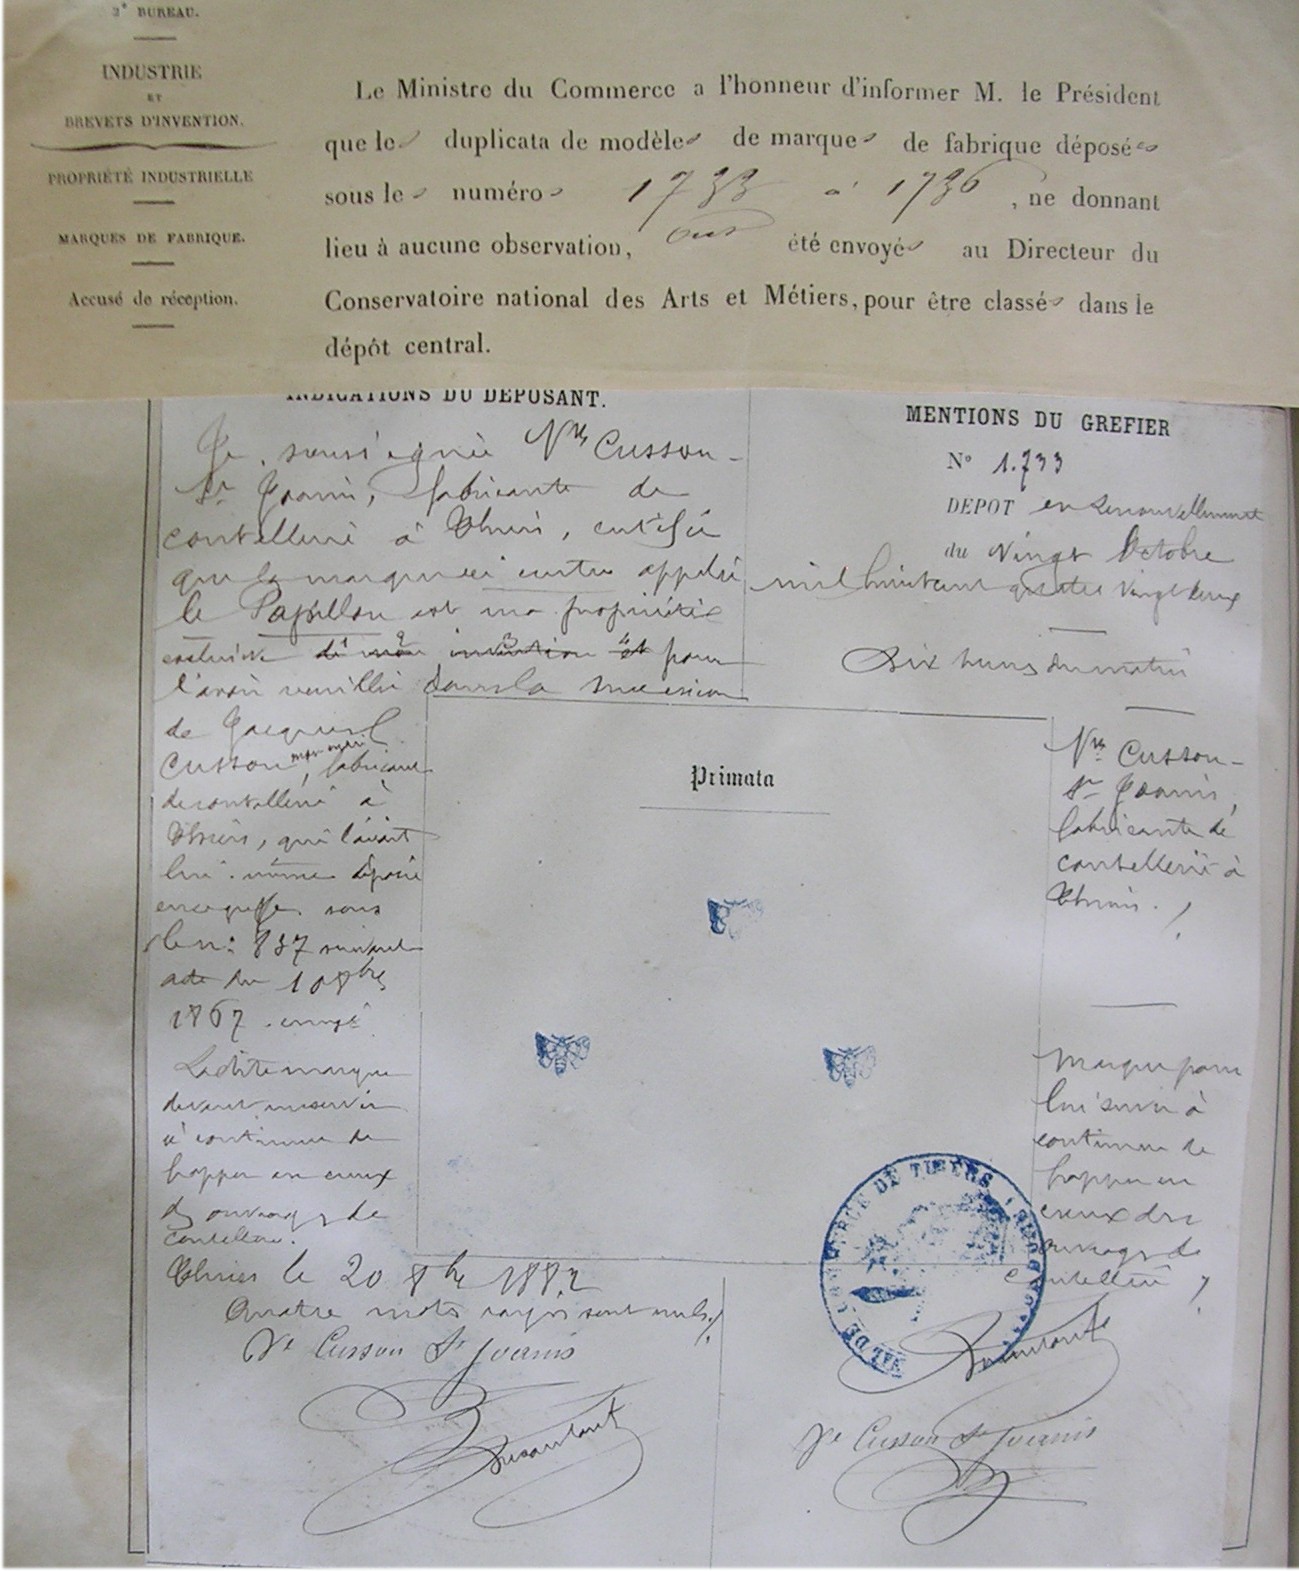 3e BUREAU.
INDUSTRIE
ET
BREVETS D'INVENTION.
PROPRIÉTÉ INDUSTRIELLE
MARQUES DE FABRIQUE.
Accusé de réception.
Le Ministre du Commerce a l'honneur d'informer M. le Président
que les duplicata de modèles de marques de fabrique déposées
sous les numéros 1733 à 1736, ne donnant
lieu à aucune observation, ont été envoyés au Directeur du
Conservatoire national des Arts et Métiers, pour être classés dans le
dépôt central.
INDICATIONS DU DÉPOSANT.
Je soussignée Vve Cusson-
St Joanis, fabricante de
coutellerie à Thiers, certifie
que la marque ci contre appelée
le Papillon est ma propriété
exclusive de mon invention et pour
l'avoir recueillie dans la succession
de Jacques
Cusson mon mari, fabricant
de coutellerie à
Thiers, qui l'avait
lui-même déposée
en ce greffe sous
le n: 837 suivant
acte du 1 8bre
1867
Ladite marque
devant me servir
à continuer de
frapper en creux
des ouvrages de
coutellerie.
Thiers le 20 8bre 1882
Quatre mots rayés sont nuls
Ve Cusson St Joanis
MENTIONS DU GREFIER
N° 1.733
DEPOT en renouvellement
du Vingt Octobre
mil huit cent quatre vingt deux
Dix heures du matin
Primata
Vve Cusson-
St Joanis,
fabricante de
coutellerie à
Thiers.
Marque pour
lui servir à
continuer de
frapper en
creux des
ouvrages de
coutellerie
Ve Cusson St Joanis